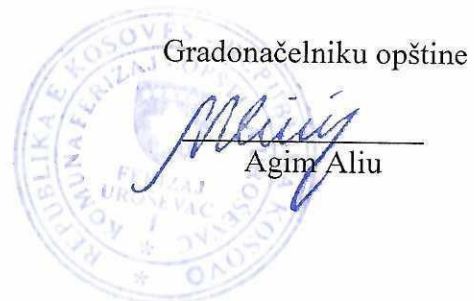 Gradonačelniku opštine
Agim Aliu
REPUBLIKA E KOSOVËS
KOSOVO
KOMUNA FERIZAJ
FERIZAJ
UROŠEVAC